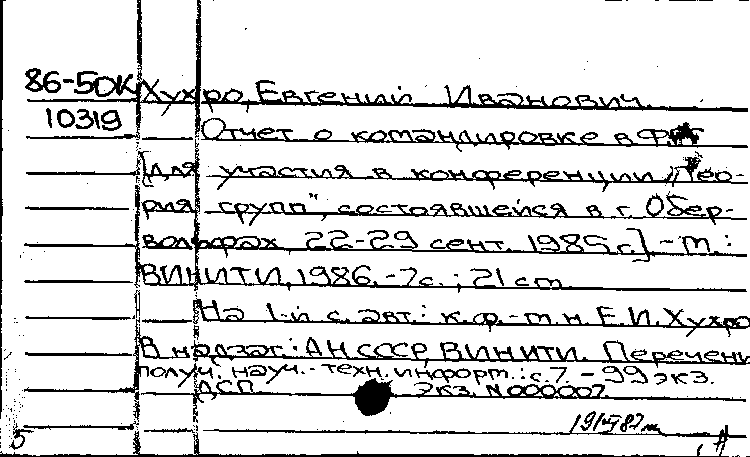 86-50К
10319
Хухро, Евгений Иванович.
Отчет о командировке в ФРГ
[для участия в конференции „Тео-
рия групп", состоявшейся в г. Обер-
вольфах, 22-29 сент. 1985 г.] - М.:
ВИНИТИ, 1986. - 7 с.; 21 см
На 1-й с. авт.: к.ф.-м.н. Е.И. Хухро
В надзаг.: АН СССР, ВИНИТИ. Перечень
получ. науч.-техн. информ.: с. 7. - 99 экз.
ДСП. Экз. N 000007.
5